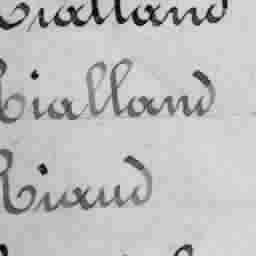 Rialland
Rialland
Riaud